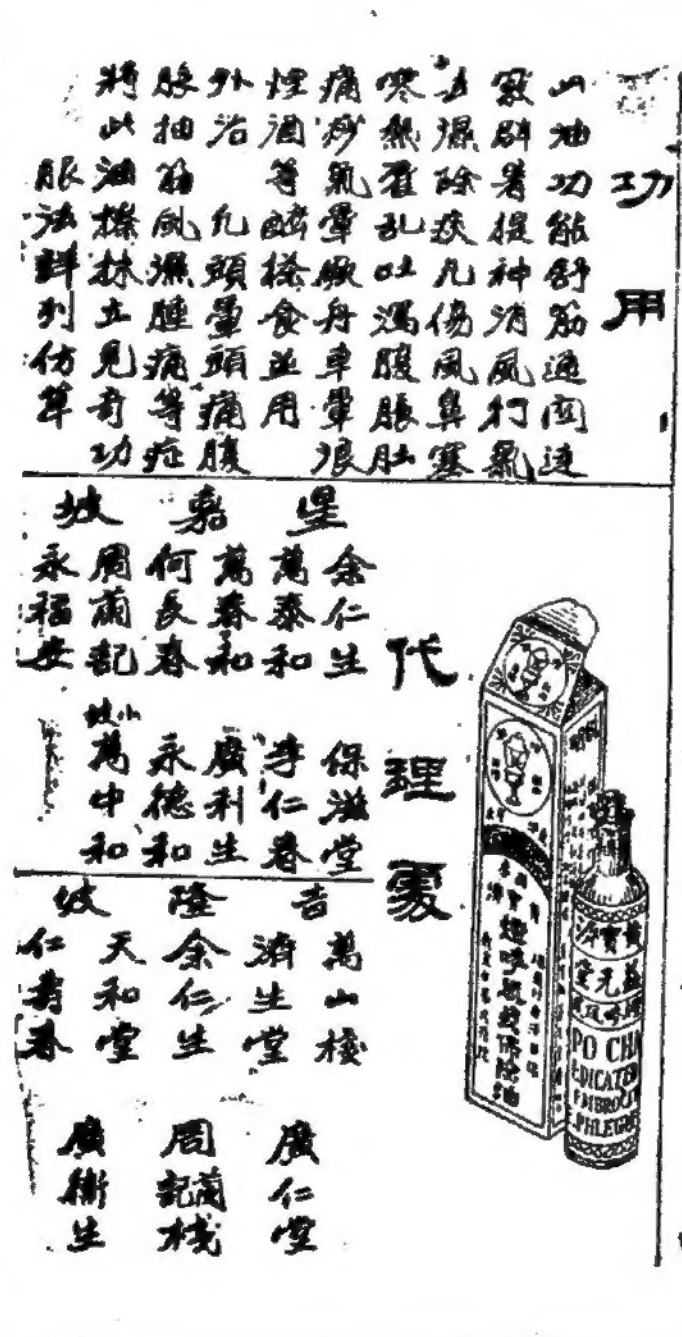 功用
此油功能舒筋通關連
竅辟暑提神消風打氣
去濕除痰凡傷風鼻塞
寒熱霍亂吐瀉腹脹肚
痛痧氣暈厥舟車暈浪
煙酒等醉搽食並用
外治 凡頭暈頭痛腹
脹抽筋風濕腫痛等症
將此油搽抹立見奇功
服法詳列仿單
代理處
星嘉坡
余仁生
萬泰和
萬春和
何長春
周蘭記
永福安
保滋堂
李仁春
廣利生
永德和
小坡
萬中和
吉隆坡
萬山棧
濟生堂
余仁生
天和堂
仁壽春
廣仁堂
周蘭記棧
廣衛生
益元堂
PO CHA